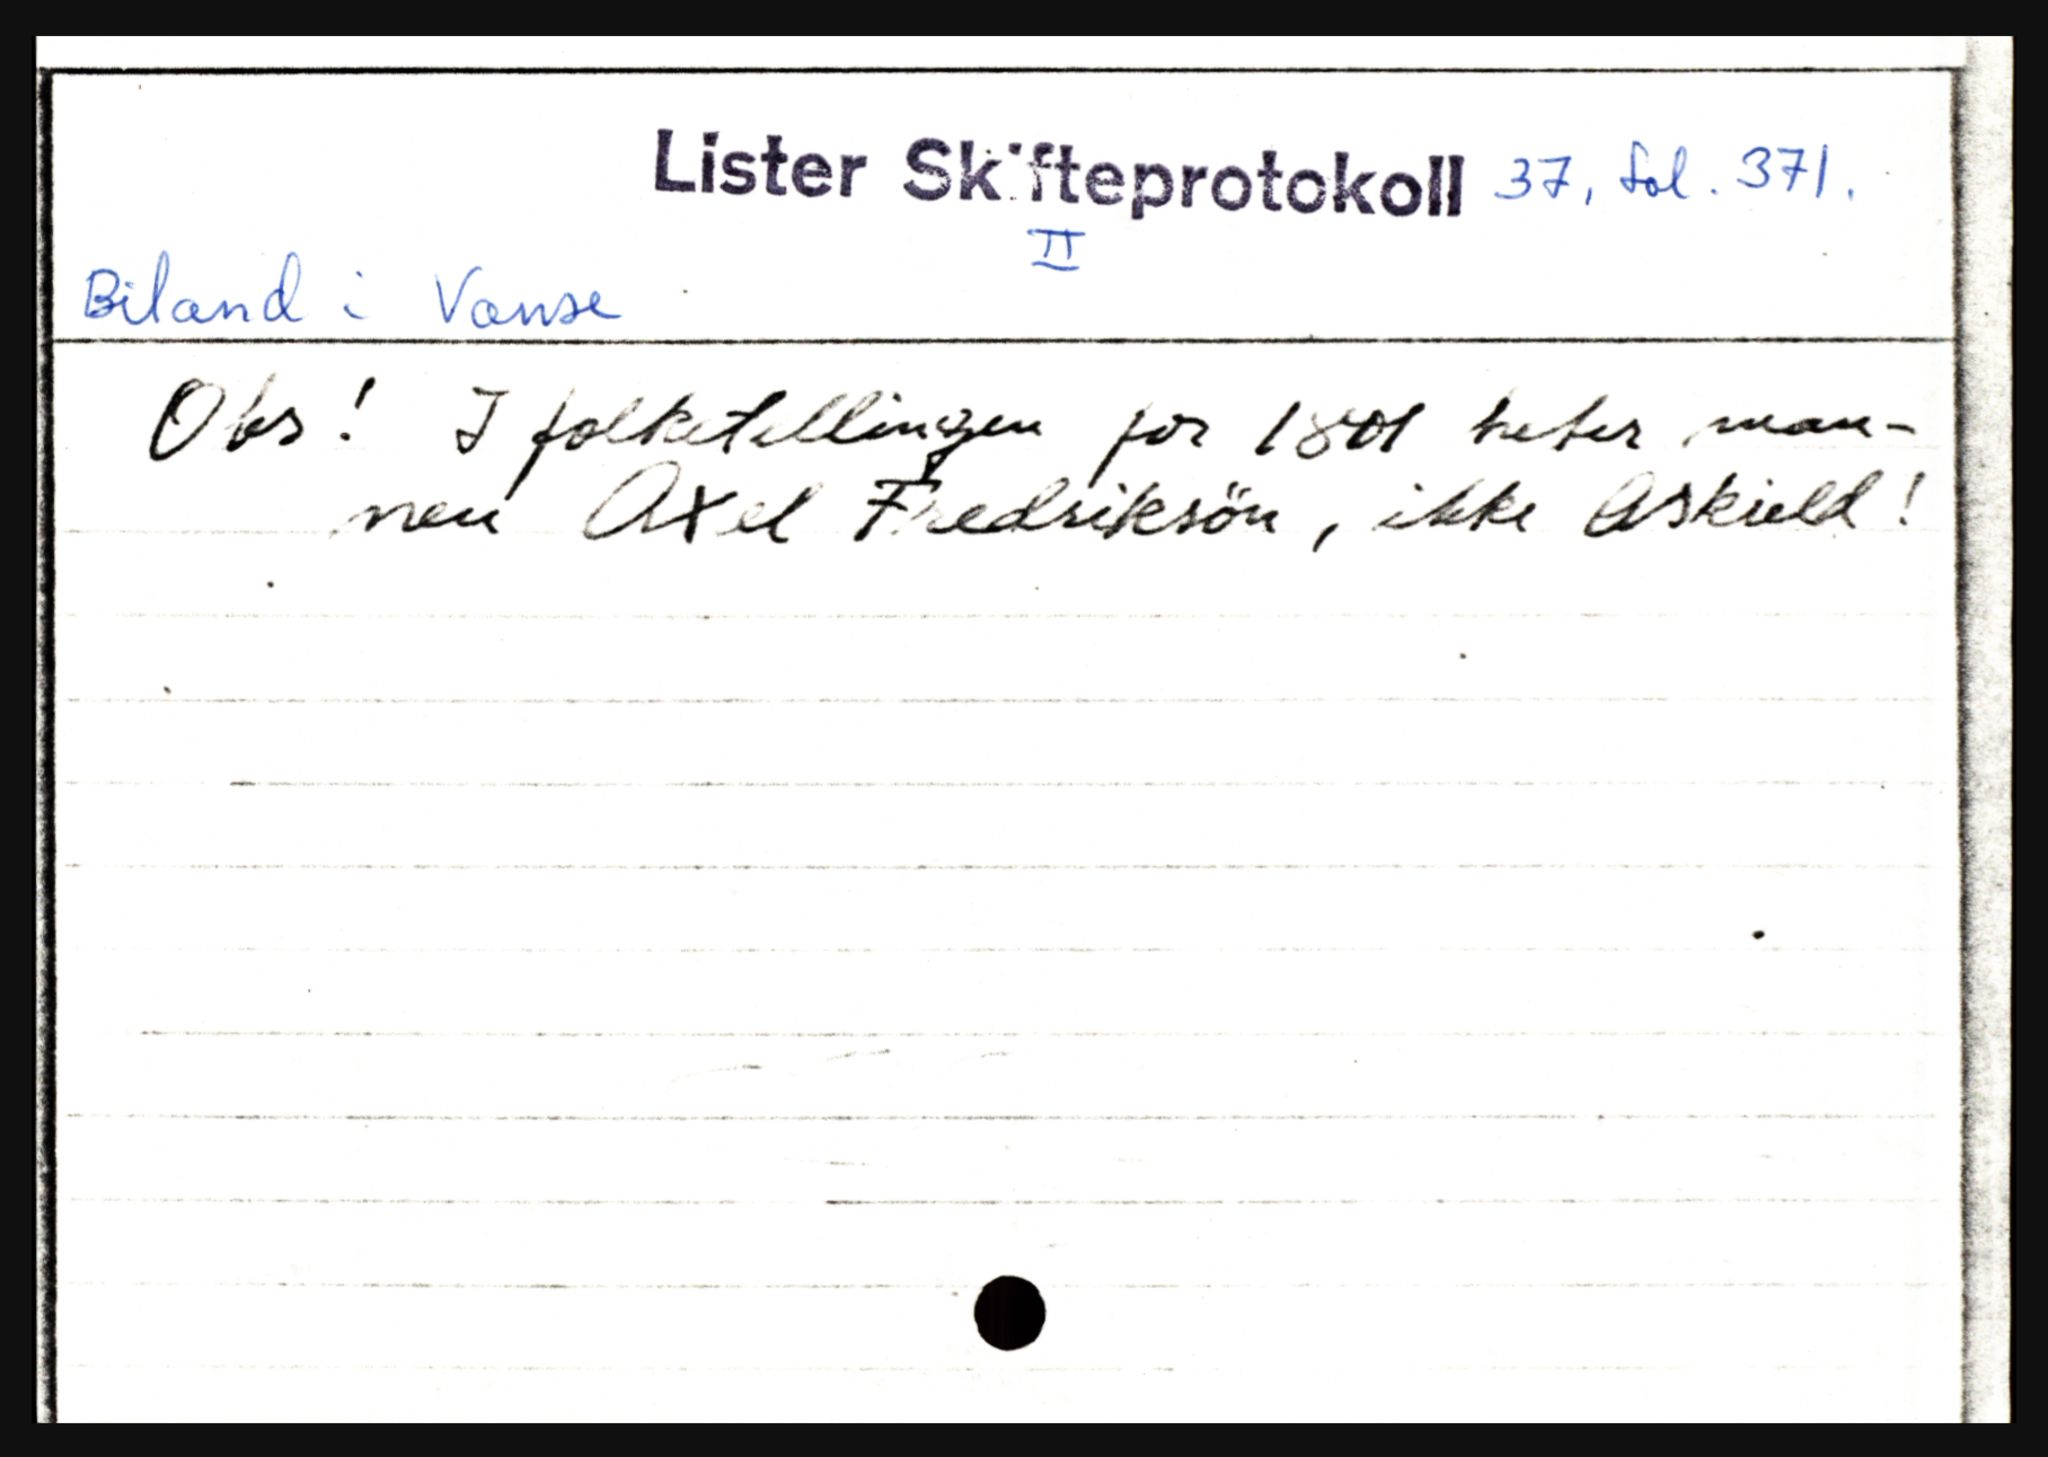 Lister Skifteprotokoll 37, fol. 371.
II
Biland i Vanse
Obs! I folketellingen for 1801 heter man-
nen Axel Fredriksön, ikke Askield!